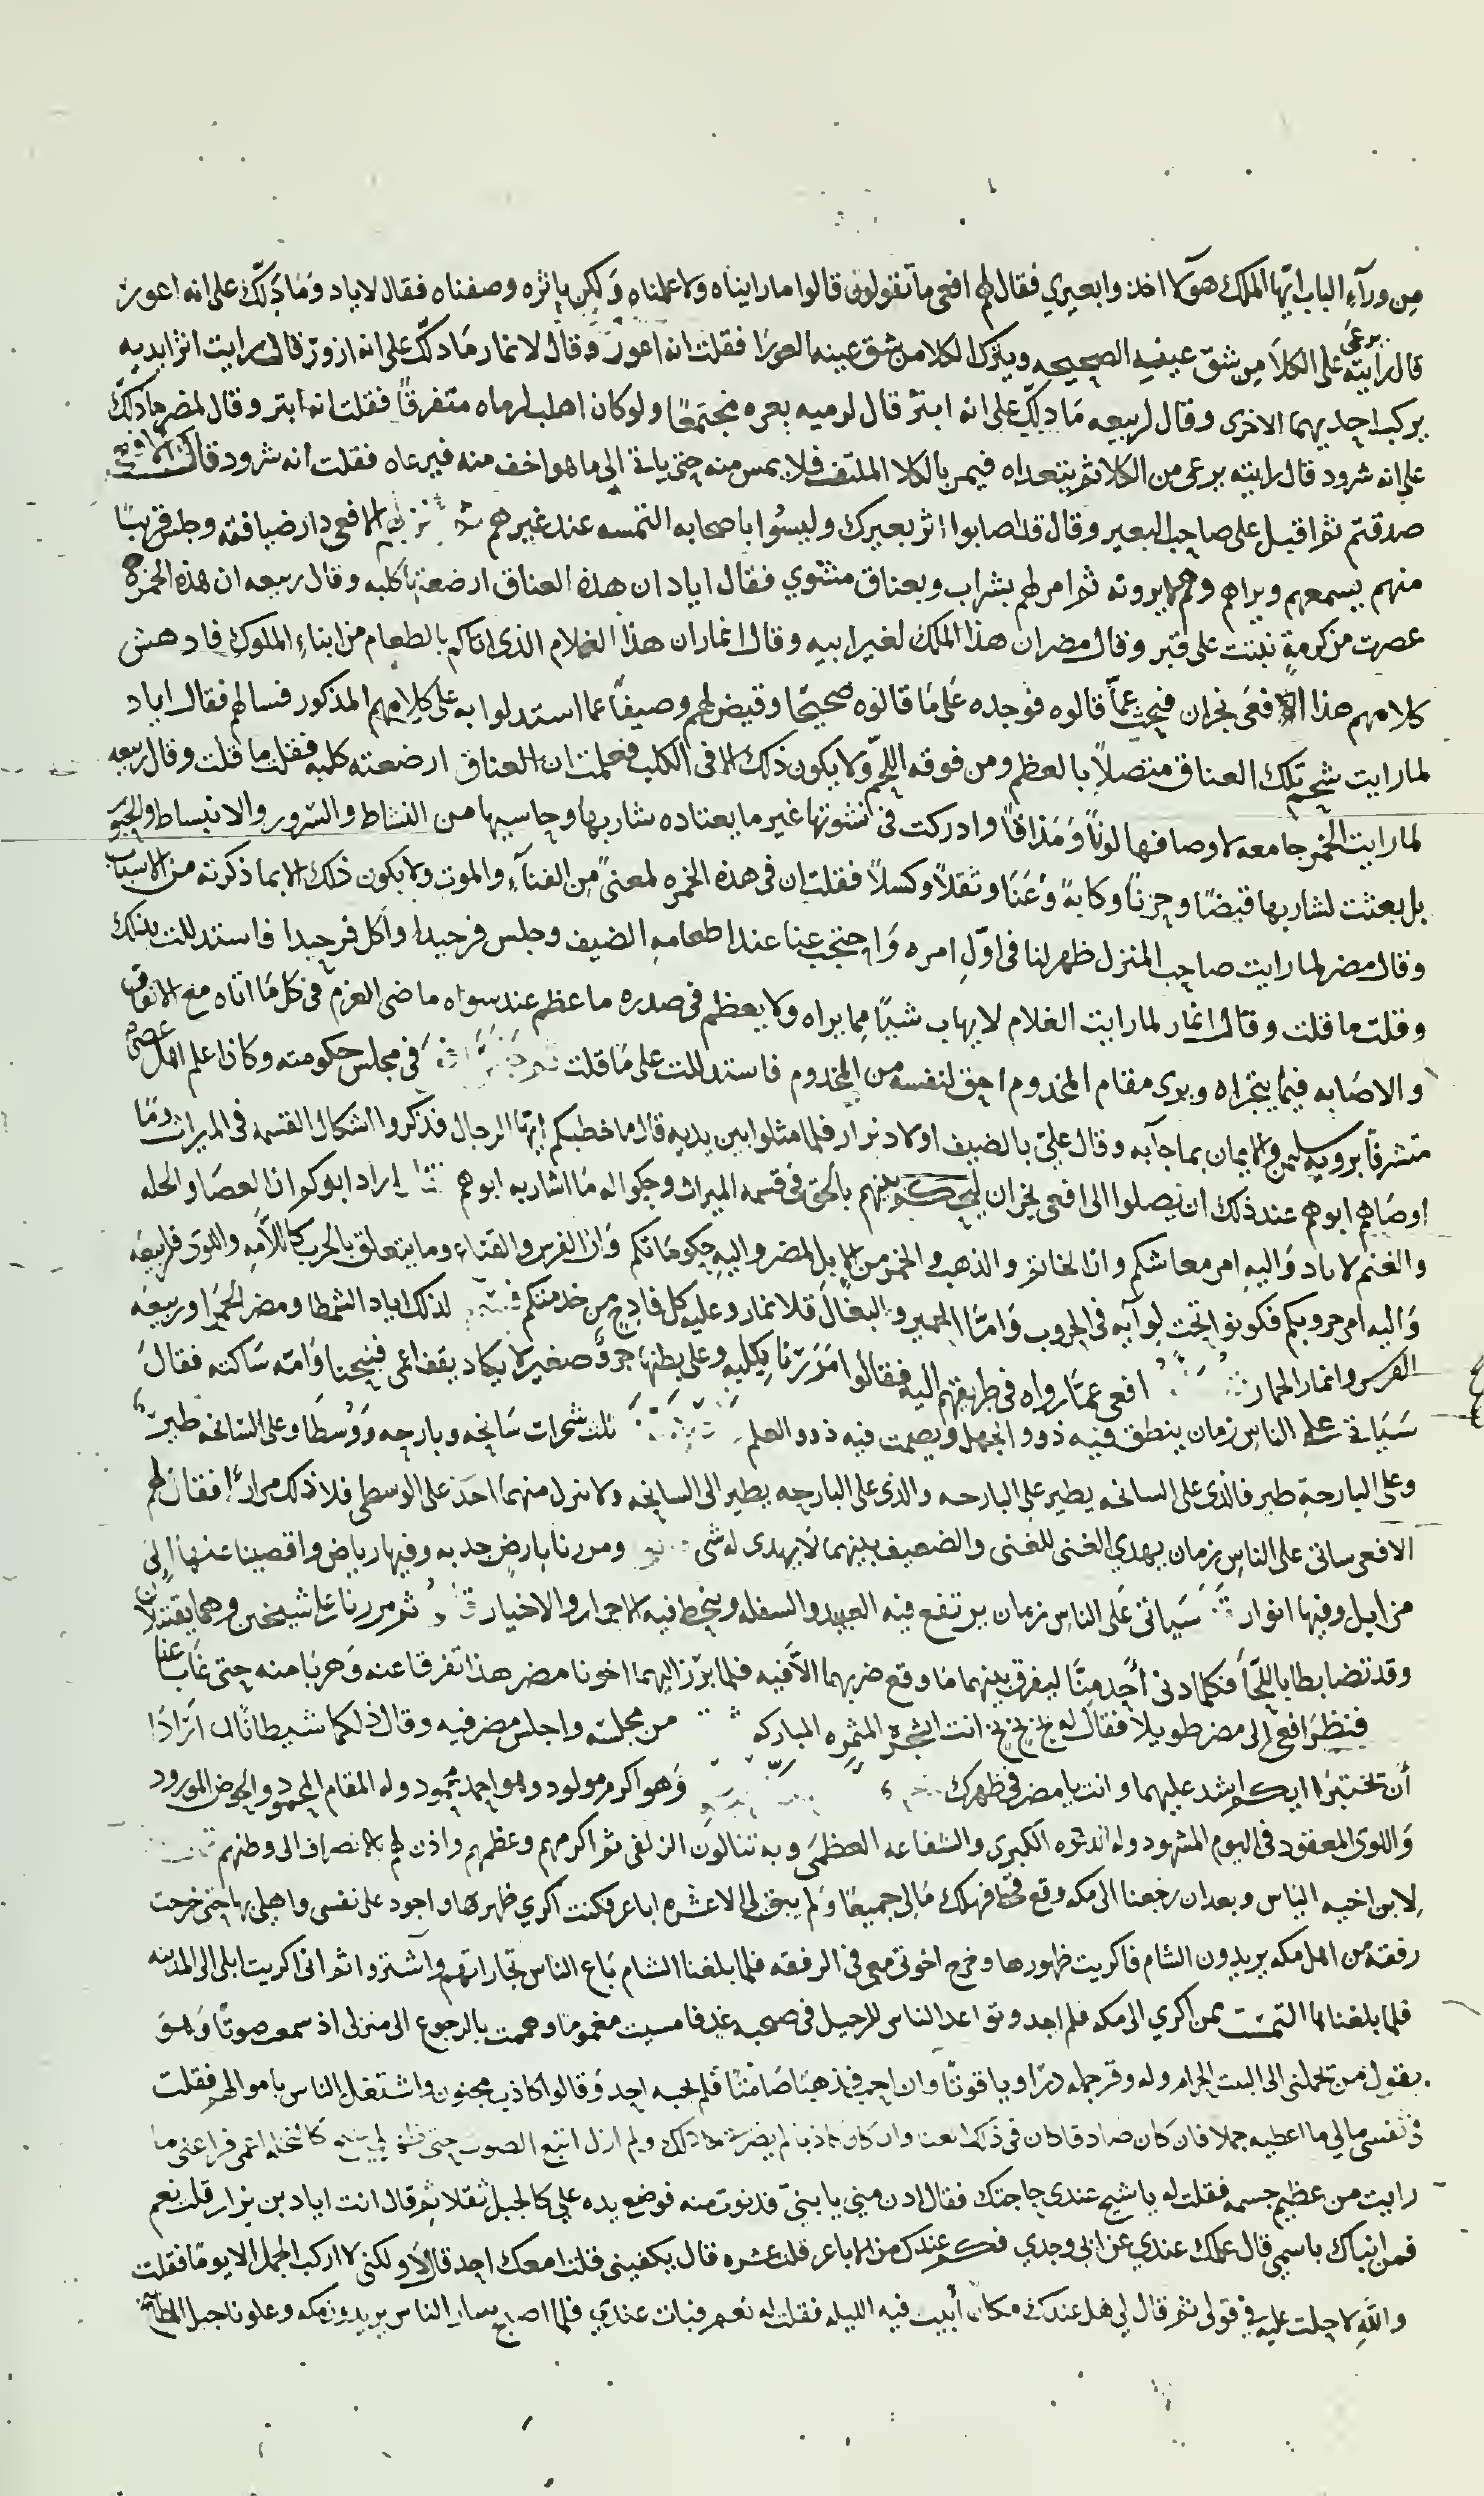 من ورآء الباب ايّها الملك هوُلآ اخذوا بعيري فقال لهم افعى ما تقولون قالوا ما رايناه ولا علمناه وَلكن باثره وصفناه فقال لاياد وَمَا دَلّك على انه اعور
قال رايته يرعى على الكلأ من شقّ عينه الصحيحه ويترك الكلا من شق عينه العورا فقلت انه اعور وقال لانمار مَا دلّك على انه ازور قال رايت اثر ايديه
يركب احديهما الاخرى وقال لربيعه مَا دلّك على انه ابتر قال لرميه بعره مجتمعًا ولو كان اهلب لرماه متفرقاً فقلت انه ابتر وقال لمضر ما دلك
على انه شرود قال رايته يرعى من الكلا ثم يتعداه فيمر بالكلا الملتف فلا يمس منه حتى ياتي الى ما هو اخف منه فيرعاه فقلت انه شرود قال لهم افعى
صدقتم ثم اقبل على صاحب البعير وقال قد اصابوا اثر بعيرك وليسُوا باصحابه التمسه عند غيرهم ثم انزلهم الافعى دار ضيافته وجلس قريبًا
منهم يسمعهم ويراهم وهم لا يرونه ثم امر لهم بشراب وبعناق مشوي فقال اياد ان هذه العناق ارضعتها كلبه وقال ربيعه ان هذه الخمره
عصرت من كرمةٍ نبتت على قبر وقال مضر ان هذا الملك لغير ابيه وقال انمار ان هذا الغلام الذى اتاكم بالطعام من ابناءِ الملوك فادهش
كلامهم هذا الافعى نجران فبحث عمّا قالوه فوجده عَلى مَا قالوه صحيحًا وقيض لهم وصيفًا عما استدلوا به على كلامهم المذكور فسالهم فقال اياد
لما رايت شحم تلك العناق متصلاً بالعظم ومن فوقه اللحم ولا يكون ذلك الا فى الكلب فعلمت ان العناق ارضعته كلبه فقلت ما قلت وقال ربيعه
لما رايت الخمر جامعه لاوصافها لونًا وَمَذاقًا وادركت فى نشوتها غير ما يعتاده شاربها وحاسيها من النشاط والسّرور والانبساط والحبور
بل بعثت لشاربها قبضًا وحزنًا وكابةً وعَنًا وثقلاً وكسلاً فقلت ان فى هذه الخمره لمعنىً من الفناءِ والموت ولا يكون ذلك الا بما ذكرته من الاسباب
وقال مضر لما رايت صاحب المنزل ظهر لنا فى اوّل امره وَاحتجب عنا عند اطعامه الضيف وجلس فرحيدا وَاكل فرحيدا فاستدللت بذلك
وقلت ما قلت وقال انمار لما رايت الغلام لا يهاب شيئًا مما يراه ولا يعظم فى صدره ما عظم عند سواه ماضى العزم فى كل مَا اتاه مع الاتفاق
والاصَابه فيما يتحراه ويرى مقام المخدوم احق لنفسه من المخدوم فاستدللت على مَا قلت فى مجلس حكومته وكان اعلم اهل عصره
متشرفًا برويه سليمن والايمان بما جآ به وقال عليّ بالضيف اولاد نزار فلما مثلوا بين يديه قال ما خطبكم ايها الرجال فذكروا اشكال القسمه فى الميراث ومَا
اوصَاهم ابوهم عند ذلك ان يصلوا الى افعى نجران ليحكم بينهم بالحق فى قسمه الميراث وحكوا له مَا اشار به ابوهم اراد ابوكم ان العصَا والحله
والغنم لاياد وَاليه امر معاشكم وان الخاتم والذهب والخمر من الابل لمضر واليه حكومَاتكم وَان الفرس والقناء وما يتعلق بالحرب كاللأمه واللوى فلربيعه
وَاليه امر حروبكم فكونوا تحت لوآيه فى الحروب وَامّا الحمير والبغالَ فلانمار وعليه كل فادح من خدمتكم لذلك اياد الشمطا ومضر الحمرا وربيعه
الفرس وانمار الحمار افعى عمّا رواه فى طريقهم اليه فقالوا مَرَرنا بكلبه وعلى بطنها جروٌ صغير لا يكاد يقف اعمى فنبحنا وَامّه سَاكته فقالَ
سَيَاتى على الناس زمان ينطق فيه ذووا الجهل ويصمت فيه ذوو العلم ثلث شجرات سَانحه وبارحه وَوُسطَا وعلى السّانحه طير
وعلى البارحة طير فالذى على السانحه يطير على البارحه والذى على البارحه يطير الى السانحه ولا ينزل منهما احَد على الوسطى فلا ذلك مرارًا فقال لهم
الافعى سياتى على الناس زمان يهدي الغنى للغنى والضعيف بينهما لا يهدى له شى ومررنا بارض جدبه وفيها رياض واقصينا عنها الى
من ابل وفيها انوار سَياتى عَلى الناس زمان يرتفع فيه العبيد والسفله وينحط فيه الاحرار والاخيار ثم مررنا على شيخين وهما يقتتلان
وقد تضابطا باللحا فكلما دنى أحد منّا ليفرق بينهما مَا وقع ضربهما الاّ فيه فلما برز اليهما اخونا مضر هذا تفرقا عنه وَهربَا منه حتى غَاب عنا
فنظرَ افعى الى مضر طويلا فقال له بخ بخ بخ انت الشجره المثمره المباركه من مجلسه واجلس مضر فيه وقال ذلكما شيطانان ارَادَا
أن تختبرا ايكم اشد عليهما وانت يا مضر فى ظهرك وَهو اكرم مولود وهو احمد محمود وله المقام المحمود والحوض المورود
وَاللوى المعقود فى اليوم المشهود وله الدعوه الكبرى والشفاعه العظمى وبه تنالون الزلفى ثم اكرمهم وعظمهم واذن لهم بالانصراف الى وطنهم
لابن اخيه الياس وبعد ان رجعنا الى مكه وقع فهلك مَالى جميعًا وَلم يبق لى الا عشره اباعر فكنت اكري ظهرها واجود على نفسى واهلى بها حتى خرجت
رفقه من اهل مكه يريدون الشام فاكريت ظهورها وخرج اخوتى معى فى الرفقه فلما بلغنا الشام بَاع الناس تجاراتهم وَاشتروا ثم انى اكريت ابلى الى المدينه
فلما بلغناها التمست من اكري الى مكه فلم اجد وتواعد الناس للرحيل فى صحبه غدٍ فامسيت مغمومًا وهممت بالرجوع الى منزلى اذ سمعت صوتًا وَهو
يقول من يحملنى الى البيت الحرام وله وقر جمله درّا وياقوتًا وَان احب فذهبًا صَامتًا فلم يجبه احد وَقالوا كاذب مجنون واشتغل الناس باموالهم فقلت
فى نفسى مالى ما اعطيه جملا فان كان صادقا كان فى ذلك الغنا وان كان كاذبا لم يضرنى ذلك ولم ازل اتبع الصوت حتى كالنخله اعمى فراعنى ما
رايت من عظيم جسمه فقلت له يا شيخ عندي حاجتك فقال ادن مني يا بنيّ فدنوت منه فوضع يده علي كالجبل ثقلا ثم قال انت اياد بن نزار قلت نعم
فمن انباك باسمي قال علمك عندي عن ابى وجدي فكم عندك من الاباعر قلت عشره قال يكفينى قلت امعك احد قال لا ولكنى لا اركب الجمل الا يومًا فقلت
والله لا حلت عليه فى قولى ثم قال لى هل عندك مكان أبيت فيه الليله فقلت له نعم فبات عندي فلما اصبح سار الناس يريدون مكه وعلونا جبل المطابخ